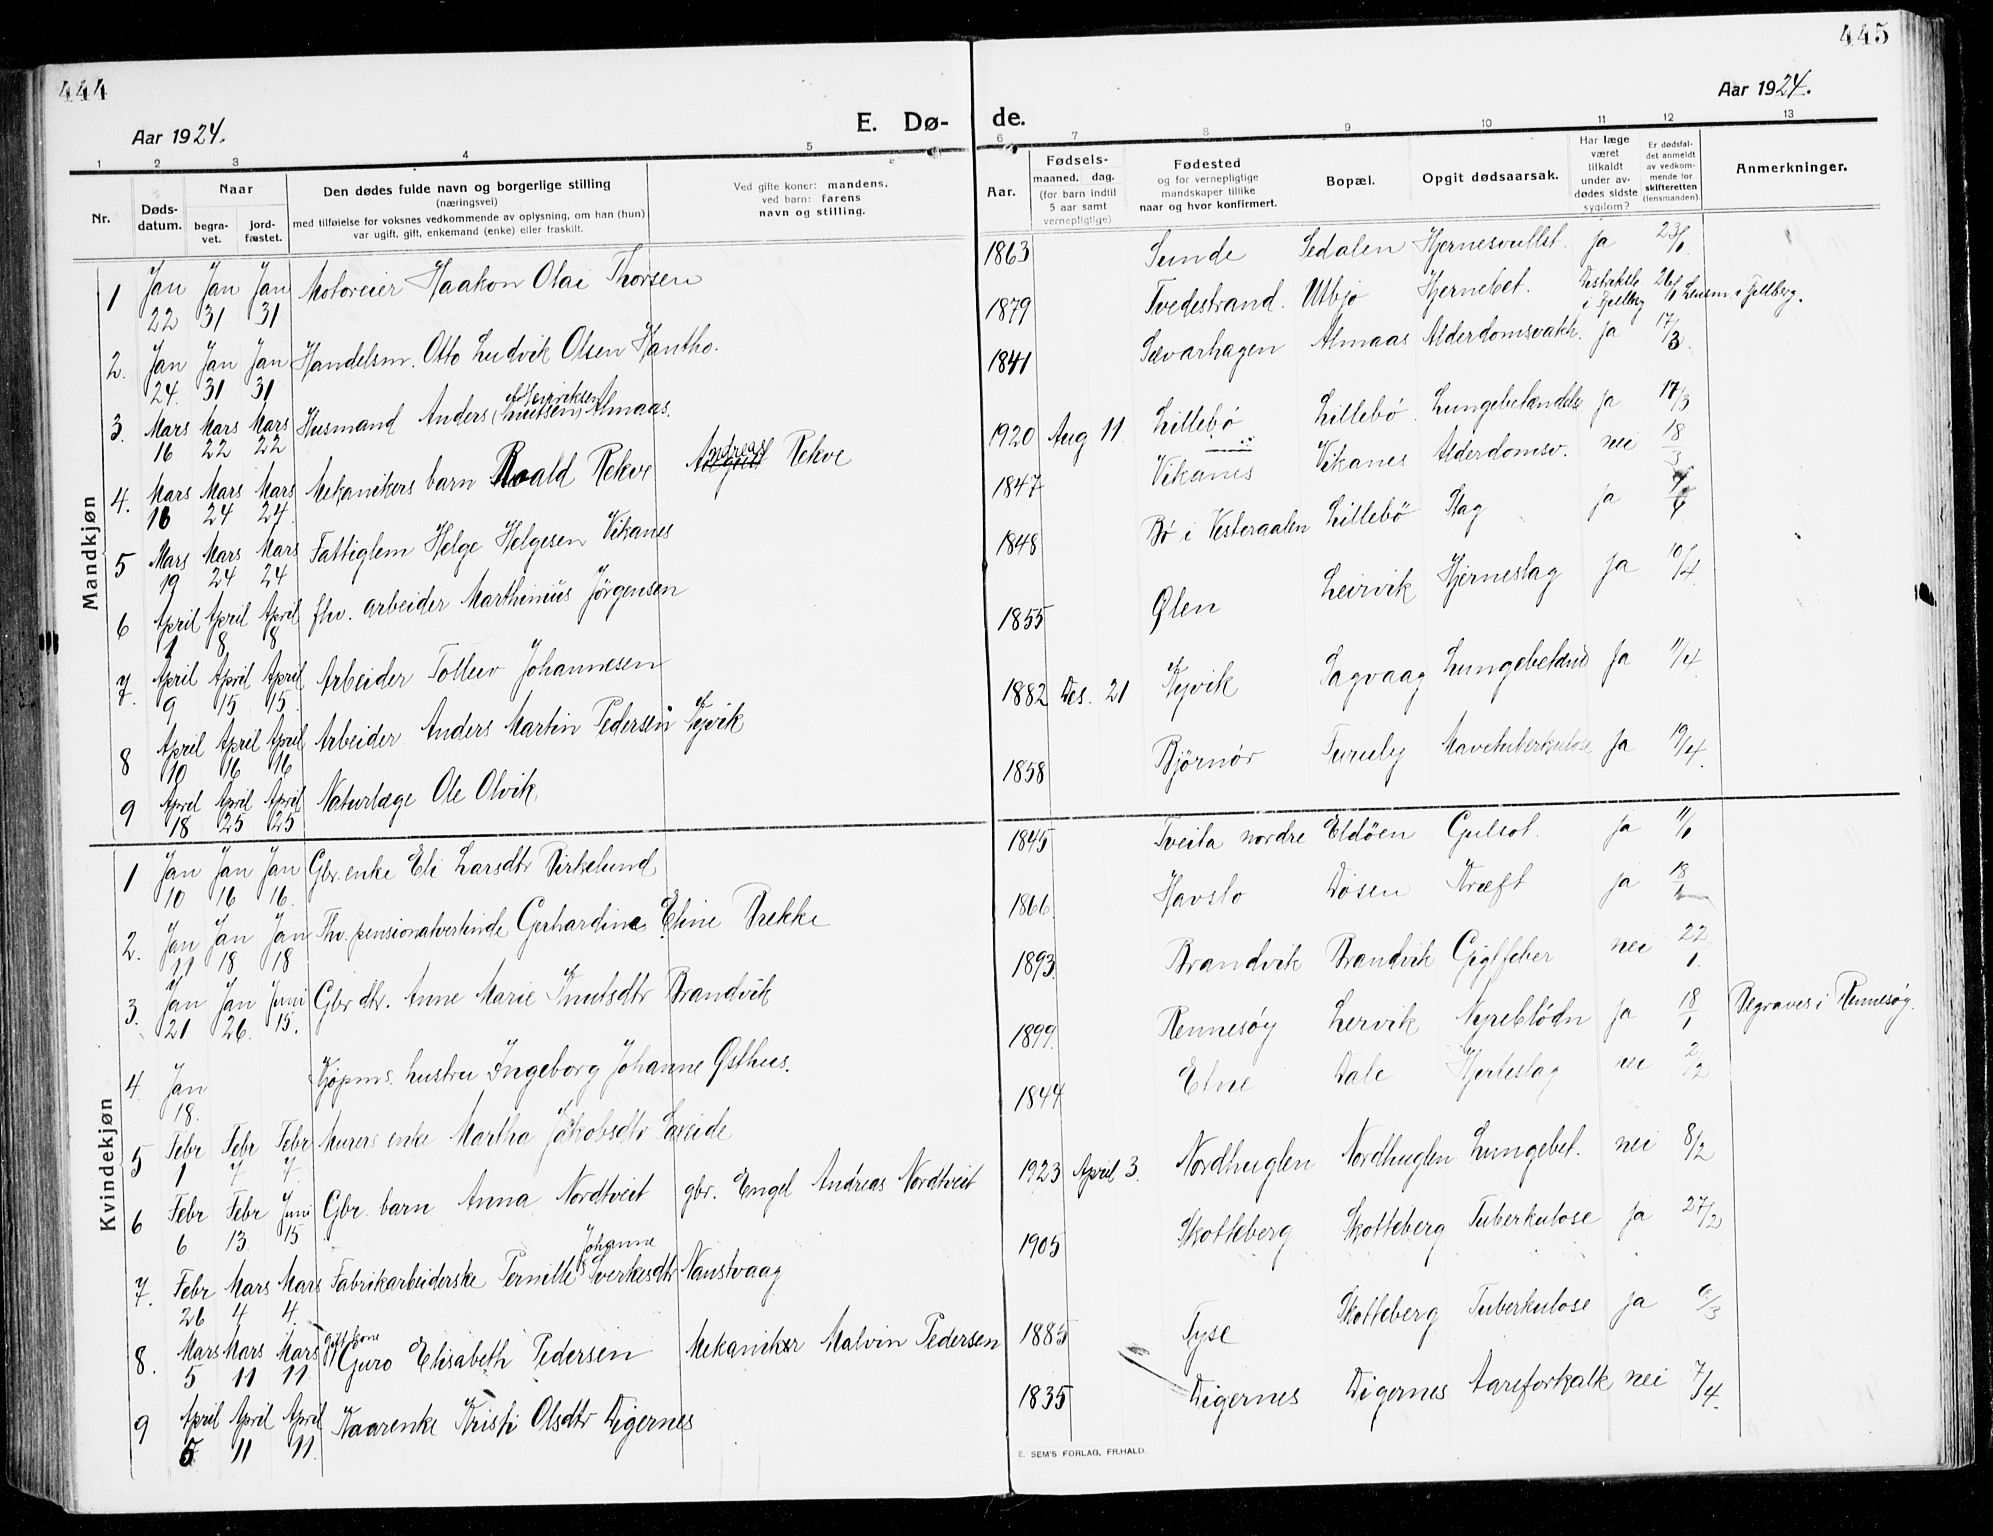 444
445
Aar 1924.
E. Dø-
de.
Aar 1924.
1 2 3 4 5 6 7 8 9 10 11 12 13
Nr.
Døds-
datum.
Naar
begra-
vet.
jord-
fæstet.
Den dødes fulde navn og borgerlige stilling
(næringsvei)
med tilføielse for voksnes vedkommende av oplysning, om han (hun)
var ugift, gift, enkemand (enke) eller fraskilt.
Ved gifte koner: mandens,
ved barn: farens
navn og stilling.
Aar.
Fødsels-
maaned. dag.
(for barn indtil
5 aar samt
vernepligtige)
Fødested
og for vernepligtige
mandskaper tillike
naar og hvor konfirmert.
Bopæl.
Opgit dødsaarsak.
Har læge
været
tilkaldt
under av-
dødes sidste
sygdom?
Er dødsfal-
det anmeldt
av vedkom-
mende for
skifteretten
(lensmanden).
Anmerkninger.
Mandkjøn
1 Jan 22 Jan 31 Jan 31 Motoreier Haakon Olai Thorsen 1863 Sunde Sedalen Hjernesvullst. Ja 23/1
2. Jan 24. Jan 31 Jan 31 Handelsm. Otto Ludvik Olsen Hantho. 1879 Tvedestrand. Utbjo Hjernebet. i Fjellberg 26/1 Lensm. i Fjellberg.
3. Mars 16 Mars 22 Mars 22 Husmand Anders (Knutsen) Henriksen Almaas. 1841 Sævarhagen Almaas Alderdomsvakh. Ja 17/3.
4. Mars 16 Mars 24 Mars 24. Mekanikers barn Roald Rekve Andreas Rekve 1920 Aug 11. Lillebø Lillebø Lungebetændelse Ja 17/3
5 Mars 19 Mars 24 Mars 24 Fattiglem Helge Helgesen Vikanes 1847 Vikanes Vikanes Alderdomsv. nei 18/3
6 April 1 April 8 April 8 fhv. arbeider Marthinius Jörgensen 1848 Bø i Vesteraalen Lillebö Slag ja
7. April 9 April 15 April 15. Arbeider Tolleiv Johannesen 1855 Ølen Leirvik Hjerneslag Ja 10/4.
8 April 10 April 16 April 16 Arbeider Anders Martin Pedersen Kyvik 1882 Des. 21 Kyvik Sagvaag Lungebetænd Ja 11/4
9 April 18 April 25 April 25 Naturlæge Ole Olvik. 1858 Björnör Furuly Mavetuberkulose Ja 19/4.
Kvindekjøn
1 Jan 10 Jan 16 Jan 16. Gbr. enke Eli Larsdtr Birkelund 1845 Tveita nordre Eldöen Gulsot. Ja 11/1
2. Jan 11 Jan 18 Jan 18 Fhv. pensionatvertinde Gerhardine Eline Brekke 1866. Havslo Dösen Kræft ja 18/1
3. Jan 21 Jan 26. Juni 15. Gbr dtr. Anne Marie Knutsdtr Brandvik 1893. Brandvik Brandvik Gigtfeber nei 22/1.
4. Jan 18. Kjöpms. hustru Ingeborg Johanne Østhus. 1899. Rennesöy Lervik Nyreblödn Ja 18/1 Begraves i Rennesöy.
5 Febr 1 Febr 7 Febr 7. Murers enke Martha Jakobsdtr Saxeide 1844 Etne Dale Hjerteslag nei 2/2
6 Febr 6 Febr 13. Juni 15 Gbr. barn Anna Nordtveit gbr. Engel Andreas Nordtveit 1923 April 3. Nordhuglen Nordhuglen Lungebet. nei 8/2
7. Febr 26 Mars 4 Mars 4. Fabrikarbeiderske Pernille Johanne Sverkesdtr Naustvaag 1905 Skotteberg Skotteberg Tuberkulose Ja 27/2
8. Mars 5 Mars 11 Mars 11. gift kone Guro Elisabeth Pedersen Mekaniker Malvin Pedersen 1885 Tyse Skotteberg Tuberkulose Ja 6/3
9 April 5 April 11 April 11. Kaarenke Kristi Olsdtr Digernes 1835 Digernes Digernes Aareforkalk nei 7/4.
E. SEM'S FORLAG, FR.HALD.